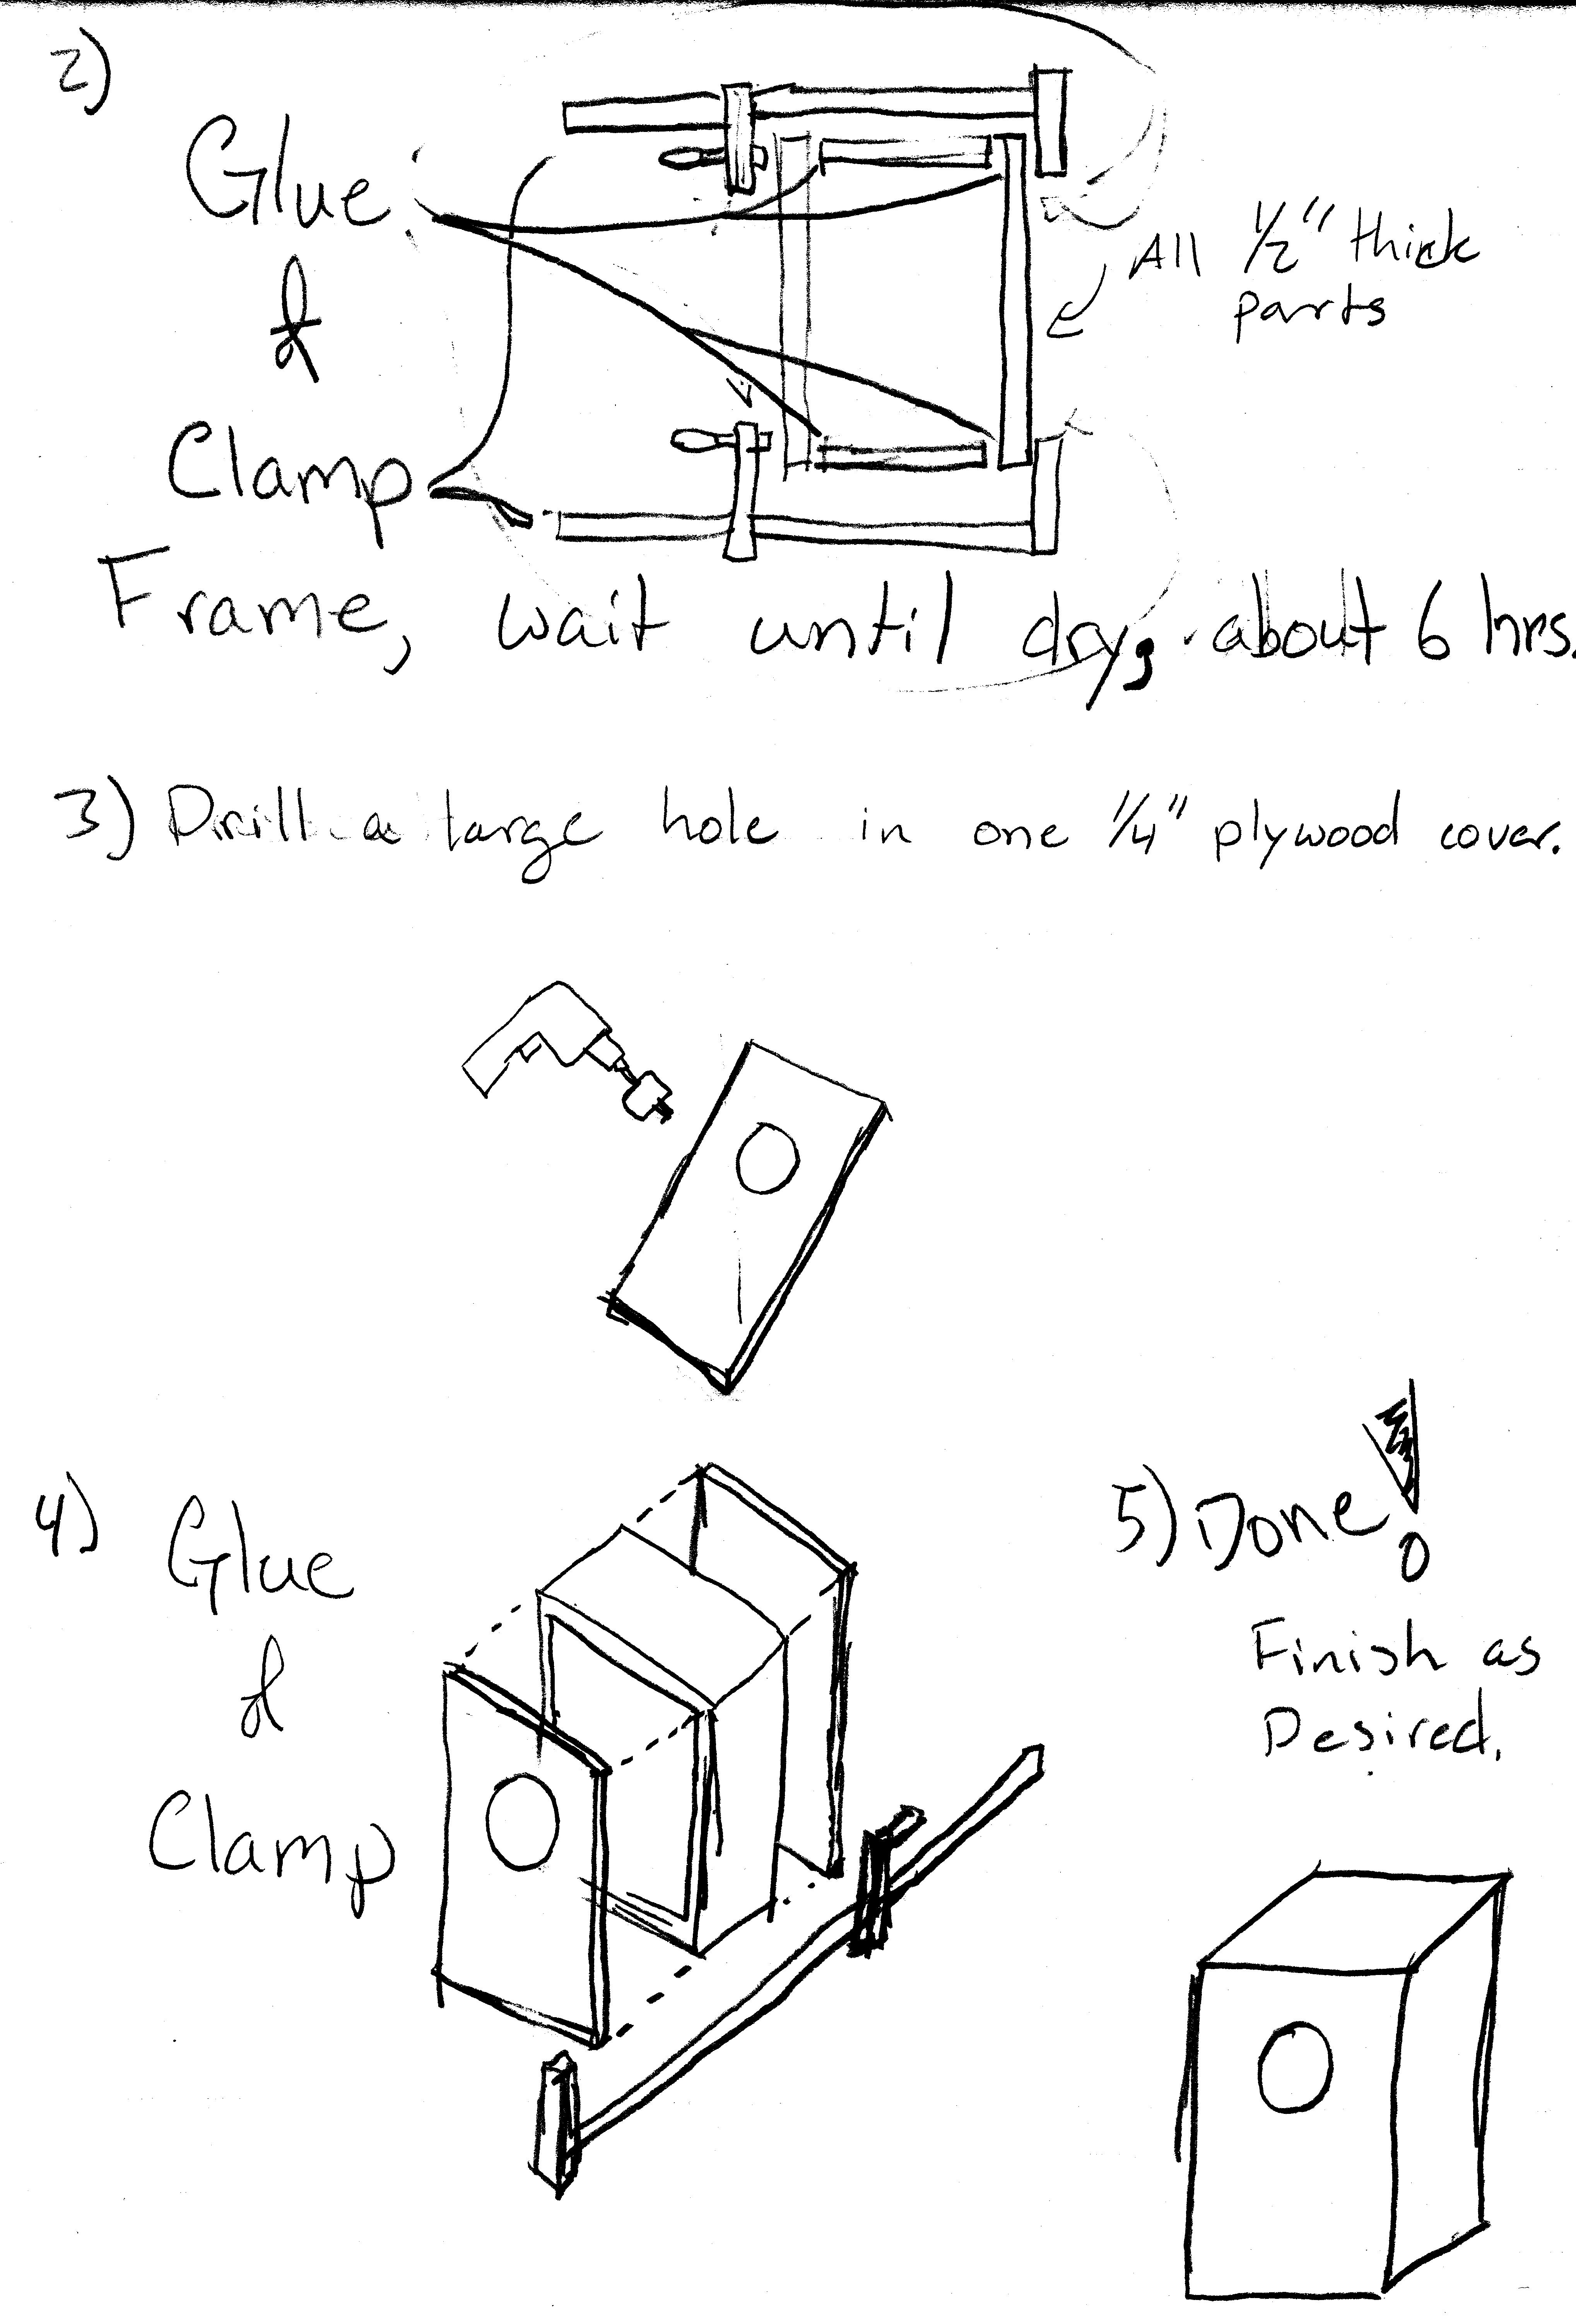 2)
Glue
&
Clamp
Frame, wait until dry, about 6 hrs.
All 1/2" thick
parts
3) Drill a large hole in one 1/4" plywood cover.
4) Glue
&
Clamp
5) Done!
Finish as
Desired.